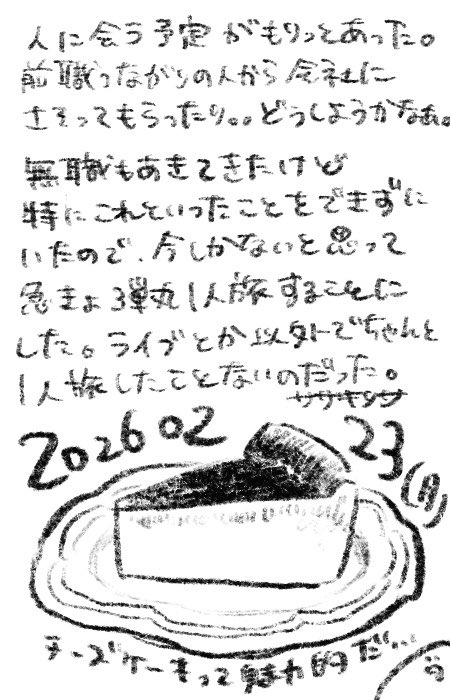 人に会う予定がもりっとあった。
前職つながりの人から会社に
さそってもらったり。。どうしようかなぁ。
無職もあきてきたけど
特にこれといったことをできずに
いたので、今しかないと思って
急きょ3弾丸1人旅することに
した。ライブとか以外でちゃんと
1人旅したことないのだった。
20260223(月)
チーズケーキって魅力的だ…